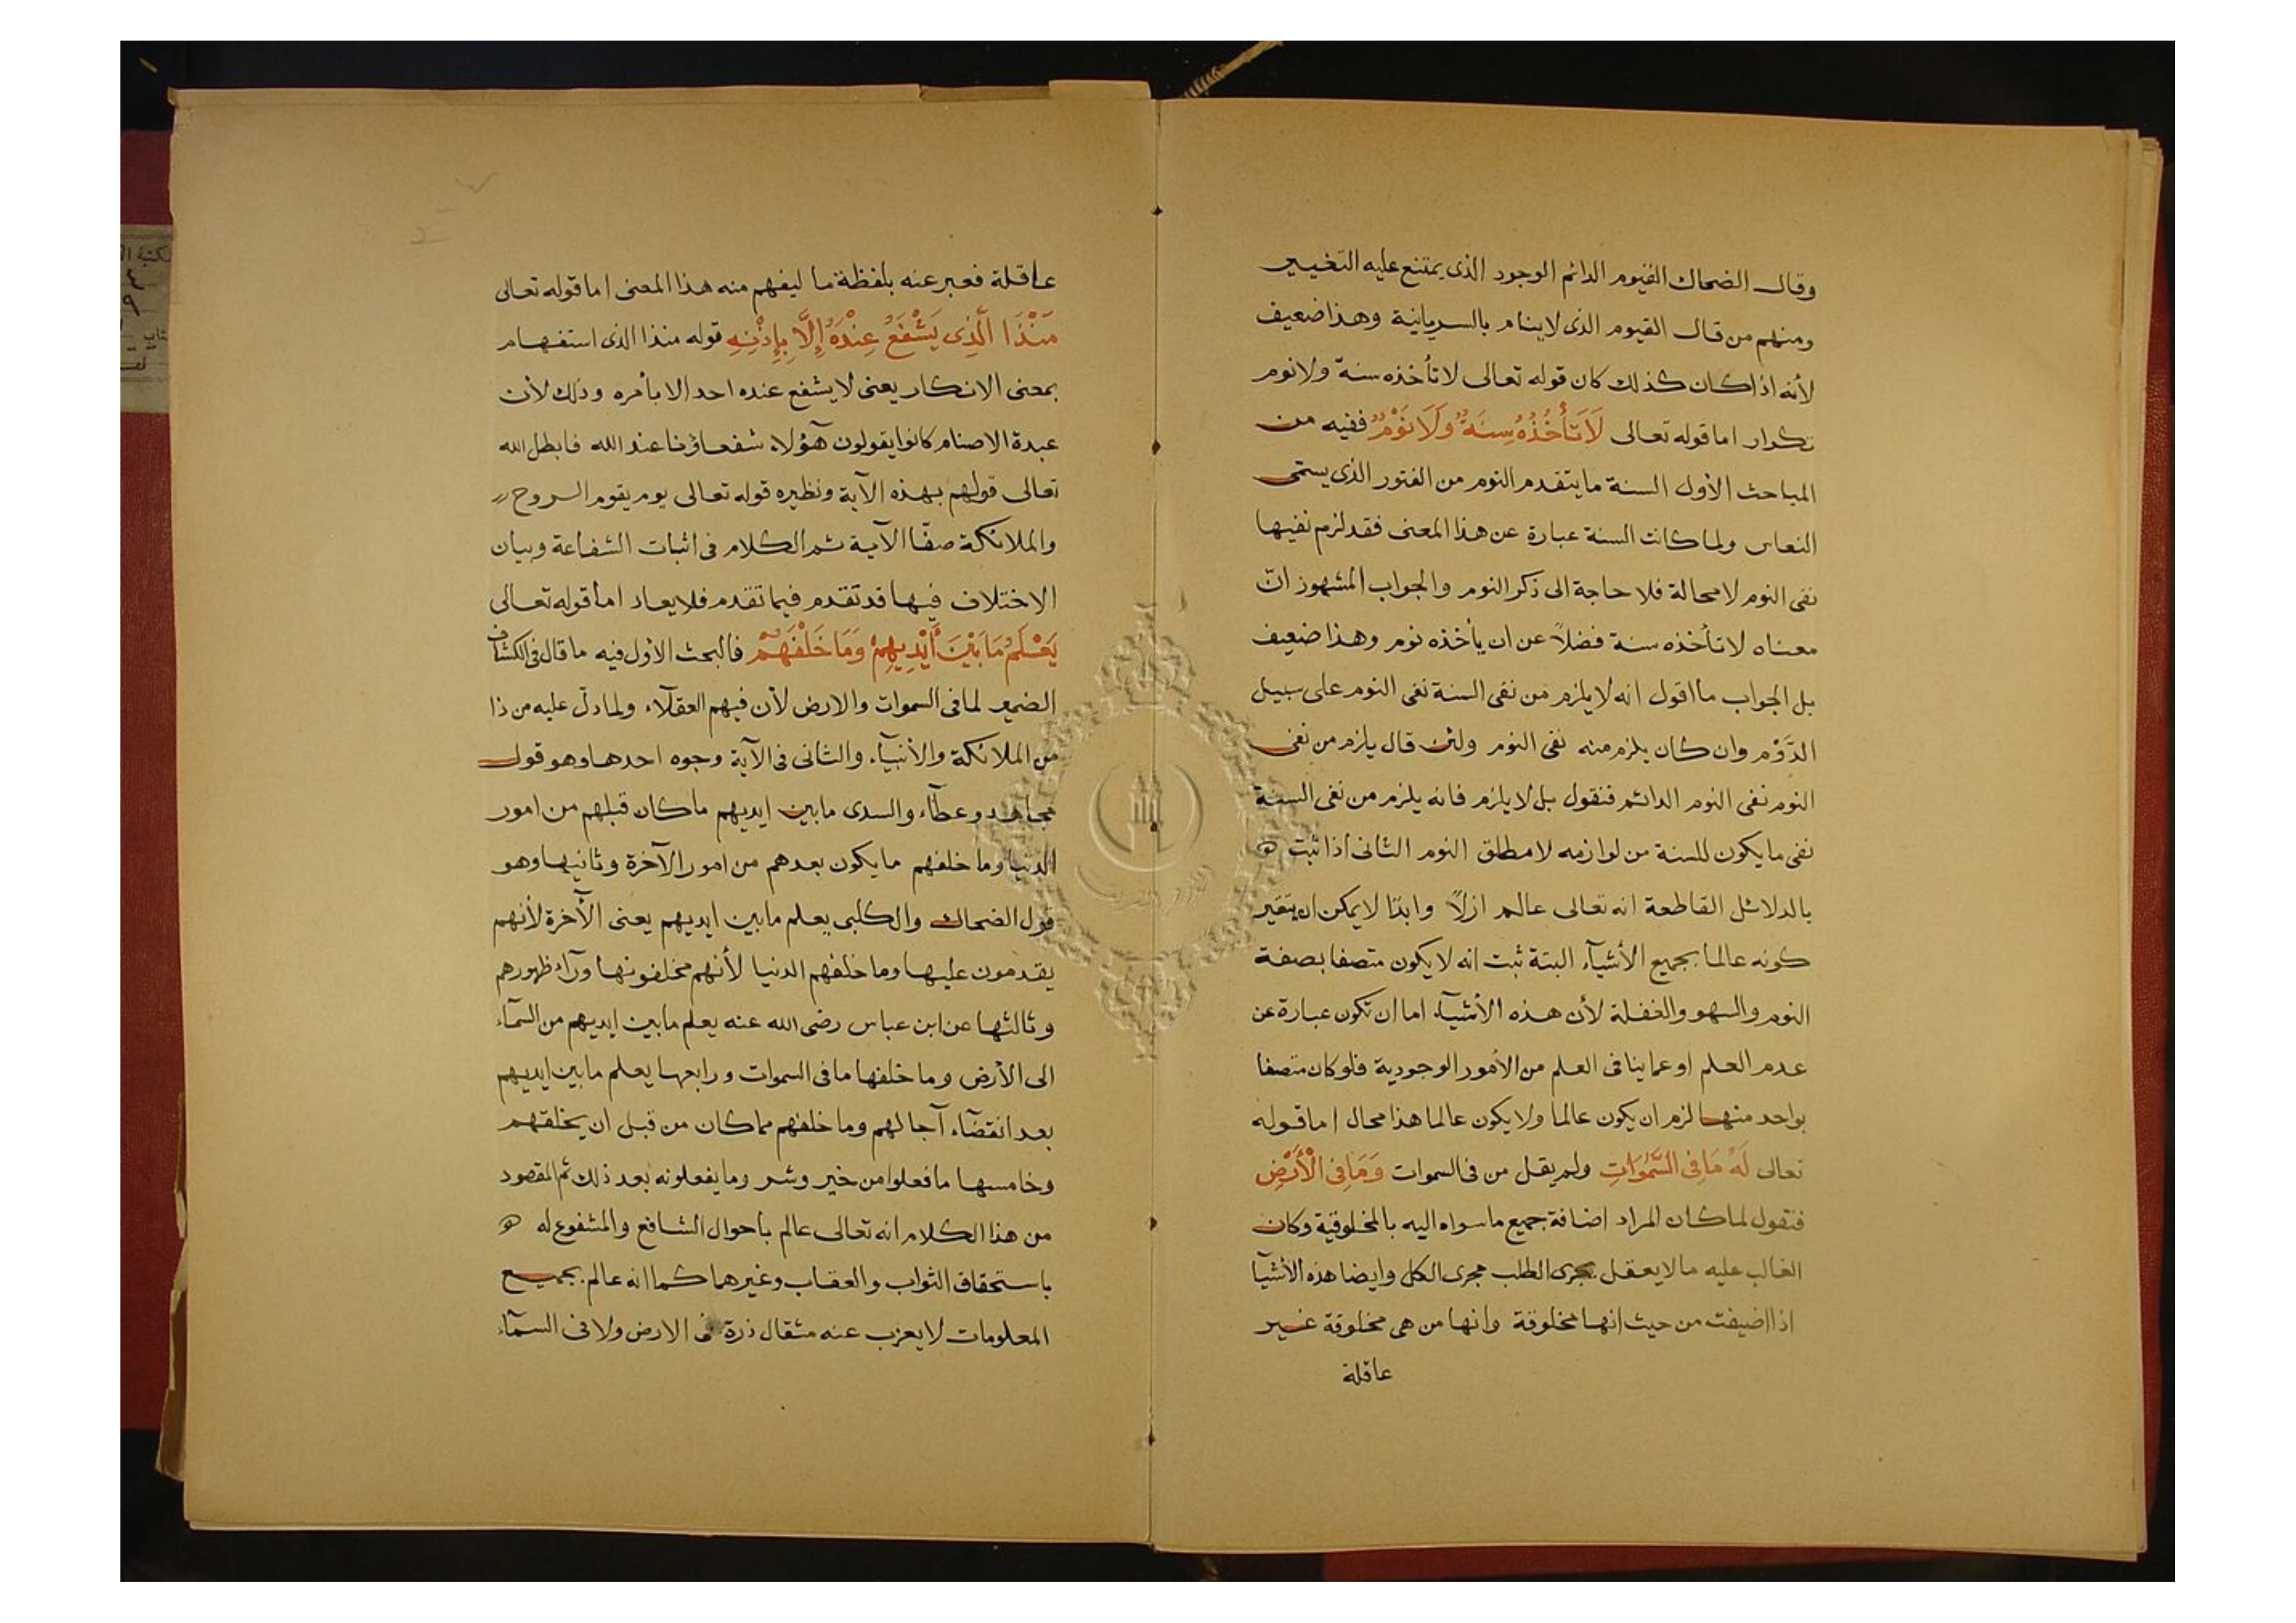 وقال الضحاك القيوم الدائم الوجود الذى يمتنع عليه التغيير
ومنهم من قال القيوم الذى لاينام بالسريانية وهذا ضعيف
لأنه اذا كان كذلك كان قوله تعالى لا تأخذه سنة ولانوم
تكرار اما قوله تعالى لَا تَأْخُذُهُ سِنَةٌ وَلَا نَوْمٌ ففيه من
المباحث الأول السنة ما يتقدم النوم من الفتور الذى يسمى
النعاس ولما كانت السنة عبارة عن هذا المعنى فقد لزم نفيها
نفى النوم لا محالة فلا حاجة الى ذكر النوم والجواب المشهور انّ
معناه لا تأخذه سنة فضلاً عن ان يأخذه نوم وهذا ضعيف
بل الجواب ما اقول انه لا يلزم من نفى السنة نفى النوم على سبيل
الدَّوْم وان كان يلزم منه نفى النوم ولئن قال يلزم من نفى
النوم نفى النوم الدائم فنقول بل لا يلزم فانه يلزم من نفى السنة
نفى ما يكون للسنة من لوازمه لا مطلق النوم الثانى اذا ثبت
بالدلائل القاطعة انه تعالى عالم ازلاً وابدًا لا يمكن ان يتغير
كونه عالما بجميع الأشيآء البتة ثبت انه لا يكون متصفا بصفة
النوم والسهو والغفلة لأن هذه الأشيآء اما ان تكون عبارة عن
عدم العلم او عما ينافى العلم من الأمور الوجودية فلو كان متصفا
بواحد منها لزم ان يكون عالما ولا يكون عالما هذا محال اما قوله
تعالى لَهُ مَا فِى السَّمٰوَاتِ ولم يقل من فى السموات وَمَا فِى الْأَرْضِ
فنقول لما كان المراد اضافة جميع ما سواه اليه بالمخلوقية وكان
الغالب عليه ما لا يعقل جرى الطلب مجرى الكل وايضا هذه الأشيآ
اذا اضيفت من حيث انها مخلوقة وانها من هى مخلوقة غير
عاقلة
عاقلة فعبر عنه بلفظة ما ليفهم منه هذا المعنى اما قوله تعالى
مَنْذَا الَّذِى يَشْفَعُ عِنْدَهُ إِلَّا بِإِذْنِهِ قوله منذا الذى استفهام
بمعنى الانكار يعنى لا يشفع عنده احد الا بأمره وذلك لأن
عبدة الاصنام كانوا يقولون هؤلاء شفعاؤنا عند الله فابطل الله
تعالى قولهم بهذه الآية ونظيره قوله تعالى يوم يقوم الروح
والملائكة صفّا الآية ثم الكلام فى اثبات الشفاعة وبيان
الاختلاف فيها قد تقدم فيما تقدم فلا يعاد اما قوله تعالى
يَعْلَمُ مَا بَيْنَ أَيْدِيهِمْ وَمَا خَلْفَهُمْ فالبحث الأول فيه ما قال فى الكشاف
الضمير لما فى السموات والارض لأن فيهم العقلآء ولما دلّ عليه من ذا
من الملائكة والأنبيآء والثانى فى الآية وجوه احدها وهو قول
مجاهد وعطآء والسدى ما بين ايديهم ما كان قبلهم من امور
الدنيا وما خلفهم ما يكون بعدهم من امور الآخرة وثانيها وهو
قول الضحاك والكلبى يعلم ما بين ايديهم يعنى الآخرة لأنهم
يقدمون عليها وما خلفهم الدنيا لأنهم مخلفونها ورآء ظهورهم
وثالثها عن ابن عباس رضى الله عنه يعلم ما بين ايديهم من السمآء
الى الأرض وما خلفها ما فى السموات ورابعها يعلم ما بين ايديهم
بعد انقضآء آجالهم وما خلفهم مما كان من قبل ان يخلقهم
وخامسها ما فعلوا من خير وشر وما يفعلونه بعد ذلك ثم المقصود
من هذا الكلام انه تعالى عالم بأحوال الشافع والمشفوع له
باستحقاق الثواب والعقاب وغيرهما كما انه عالم بجميع
المعلومات لا يعزب عنه مثقال ذرة فى الارض ولا فى السمآء